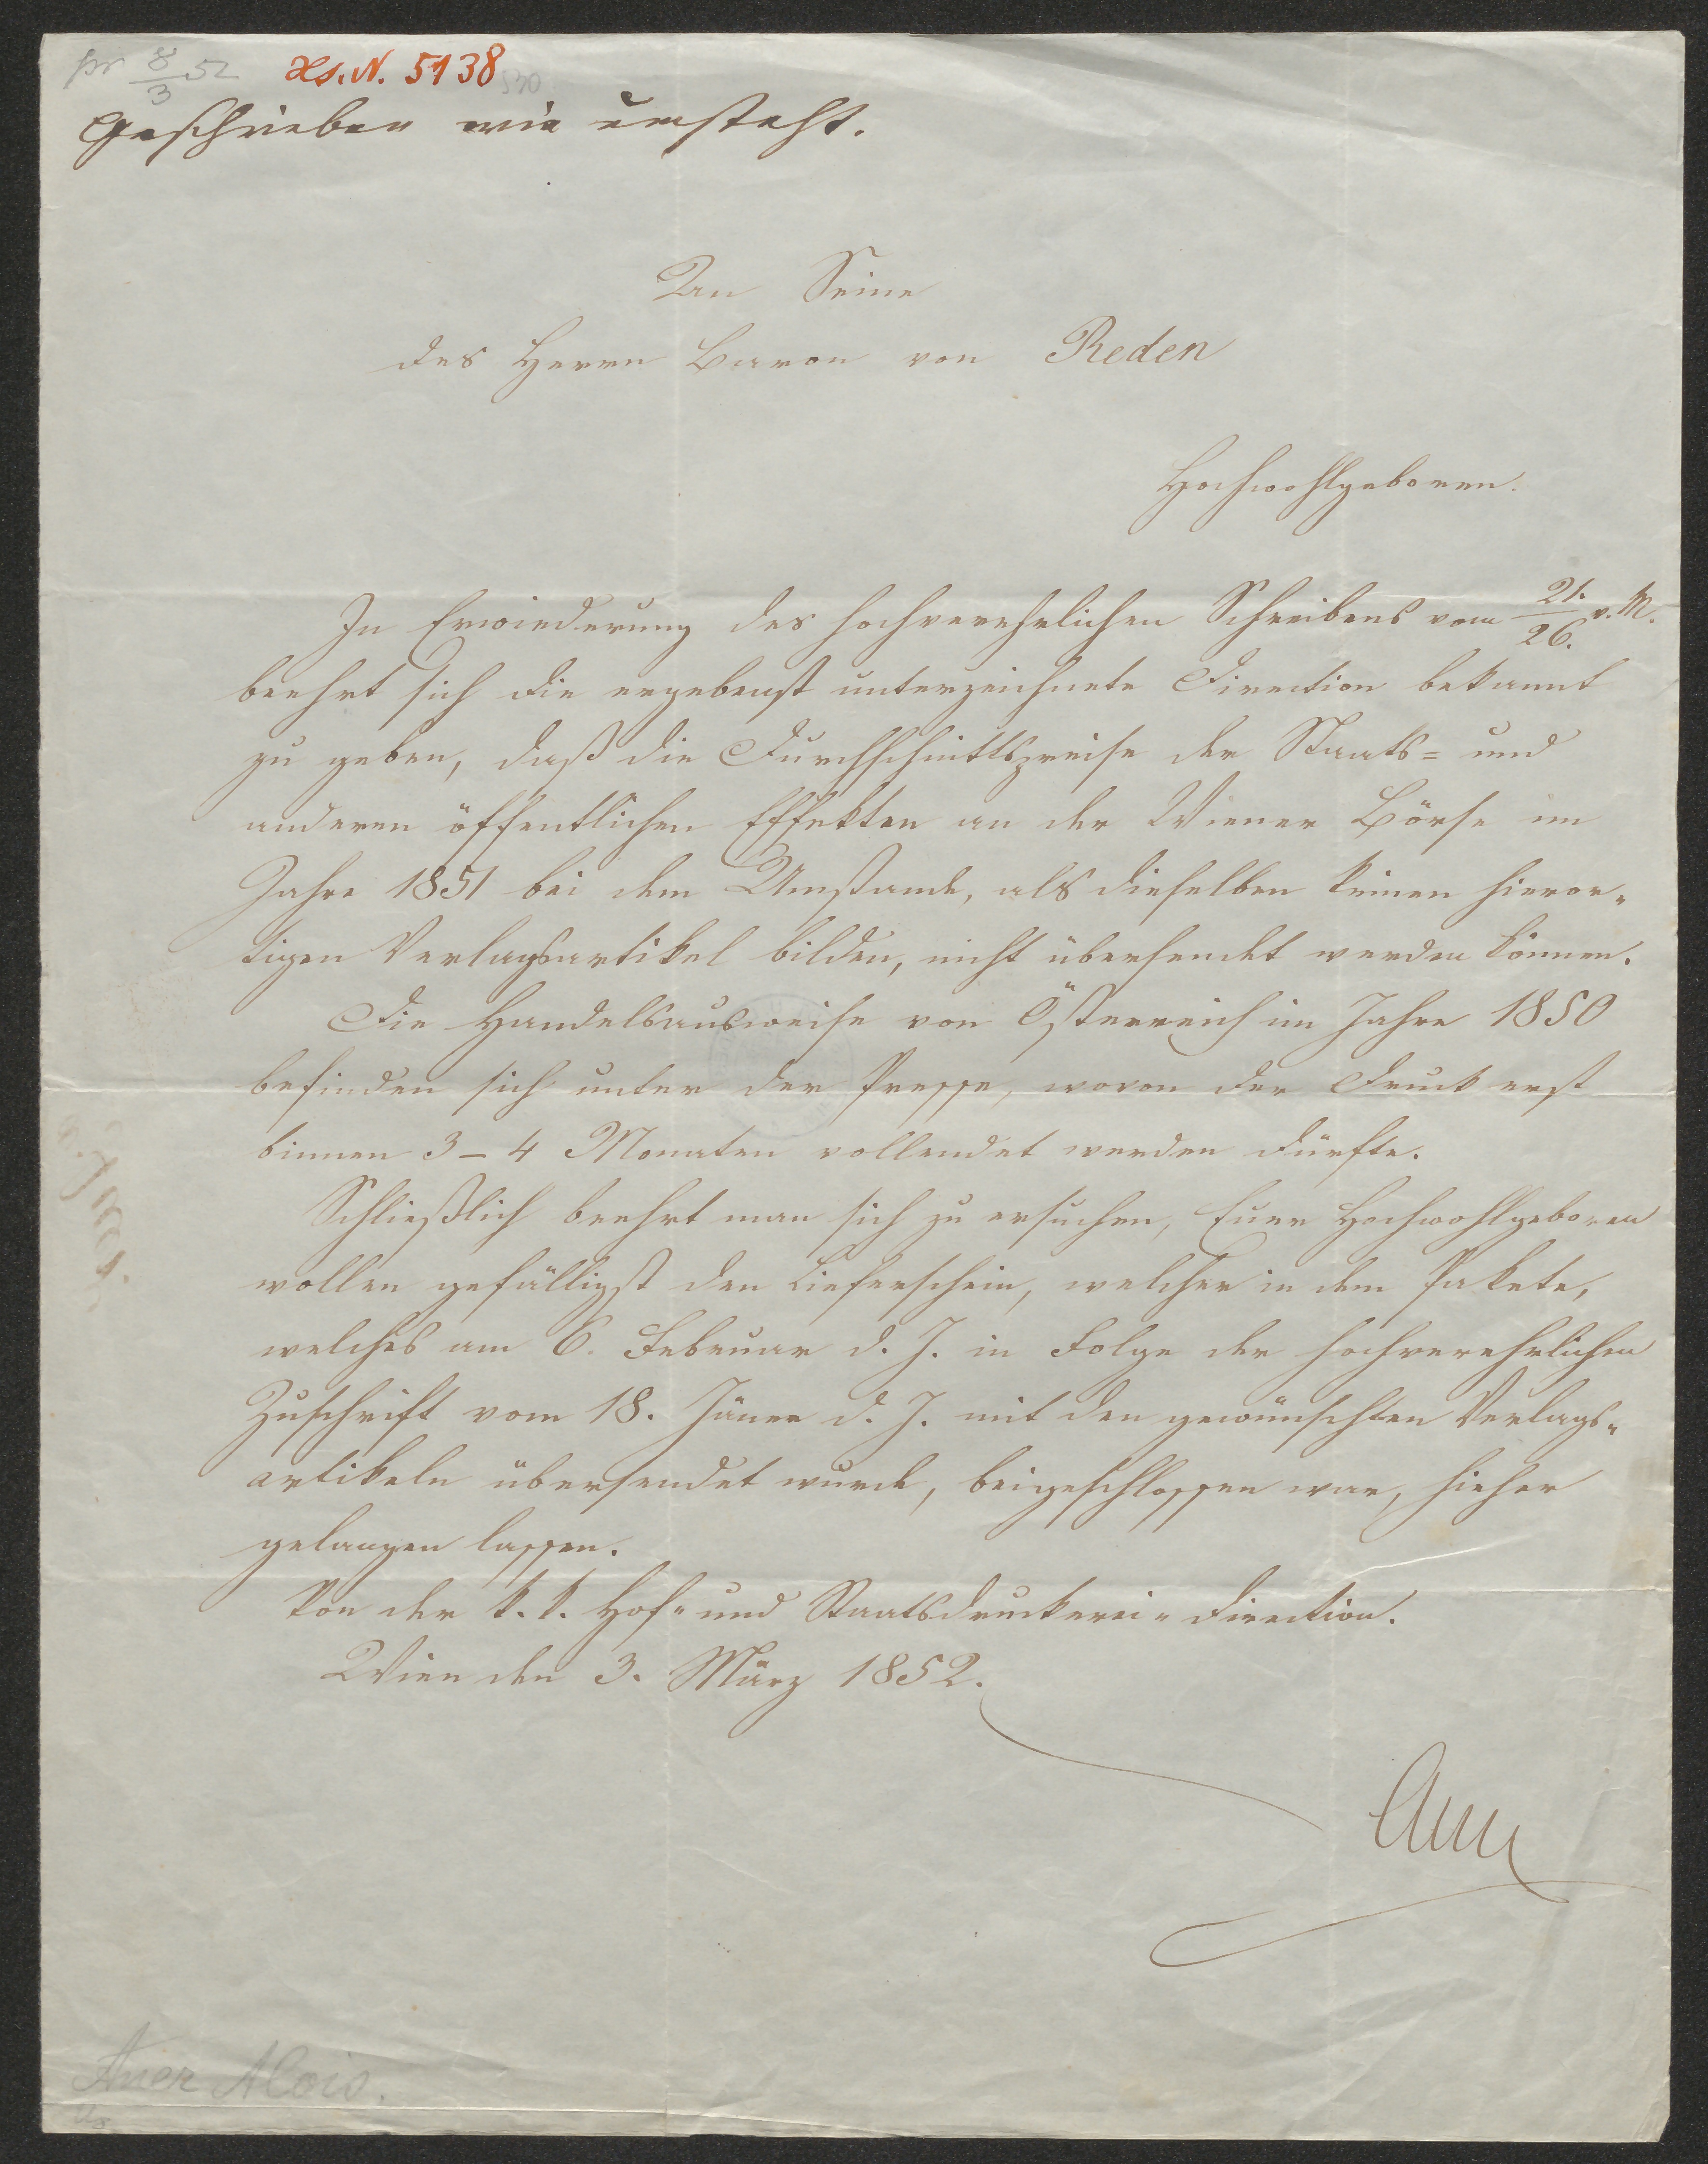 pr 8/3 52 Hs. N. 5138
Geschrieben wie umsteht.
An Seine
des Herrn Baron von Reden
Hochwohlgeboren.
In Erwiederung des hochverehrlichen Schreibens vom 21./26. v. M.
beehrt sich die ergebenst unterzeichnete Direction bekannt
zu geben, daß die Durchschnittspreise der Staats= und
anderen öffentlichen Effekten an der Wiener Börse im
Jahre 1851 bei dem Umstande, als dieselben keinen hieror-
tigen Verlagsartikel bilden, nicht übersendet werden können.
Die Handelsausweise von Österreich im Jahre 1850
befinden sich unter der Presse, wovon der Druck erst
binnen 3–4 Monaten vollendet werden dürfte.
Schließlich beehrt man sich zu ersuchen, Euer Hochwohlgeboren
wollen gefälligst den Lieferschein, welcher in dem Pakete,
welches am 6. Februar d. J. in Folge der hochverehrlichen
Zuschrift vom 18. Jäner d. J. mit den gewünschten Verlags-
artikeln übersendet wurde, beigeschlossen war, hieher
gelangen lassen.
Von der k. k. Hof- und Staatsdruckerei-Direction.
Wien den 3. März 1852.
Auer
Auer Alois.